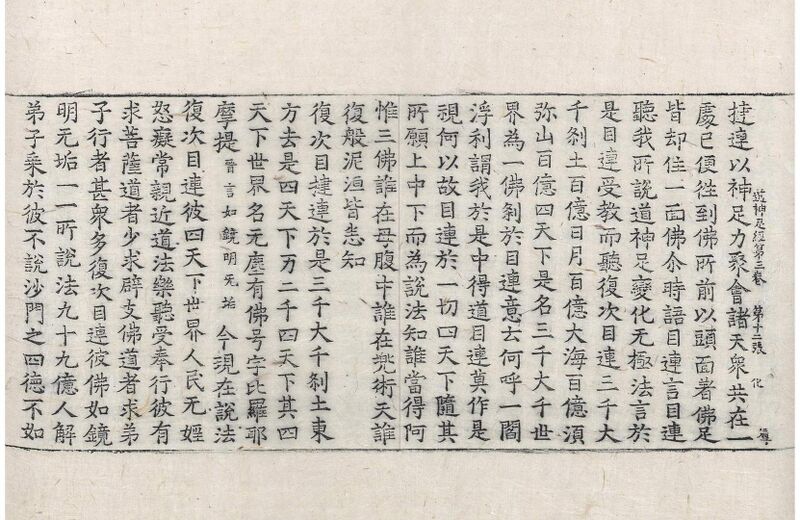 道神足經第三卷 第十二張 化
揵連以神足力聚會諸天衆共在一
處已便徃到佛所前以頭面著佛足
皆却住一面佛尒時語目連言目連
聽我所說道神足變化无極法言於
是目連受教而聽復次目連三千大
千刹土百億日月百億大海百億湏
弥山百億四天下是名三千大千世
界為一佛刹於目連意云何呼一閻
浮利謂我於是中得道目連莫作是
視何以故目連於一切四天下隨其
所願上中下而為說法知誰當得阿
惟三佛誰在母腹中誰在兠術天誰
復般泥洹皆悉知
復次目揵連於是三千大千刹土東
方去是四天下万二千四天下其四
天下世界名无塵有佛号字比羅耶
摩提晉言如鏡明无垢今現在說法
復次目連彼四天下世界人民无婬
怒癡常親近道法樂聽受奉行彼有
求菩薩道者少求辟支佛道者求弟
子行者甚衆多復次目連彼佛如鏡
明无垢一一所說法九十九億人解
弟子乘於彼不說沙門之四徳不如